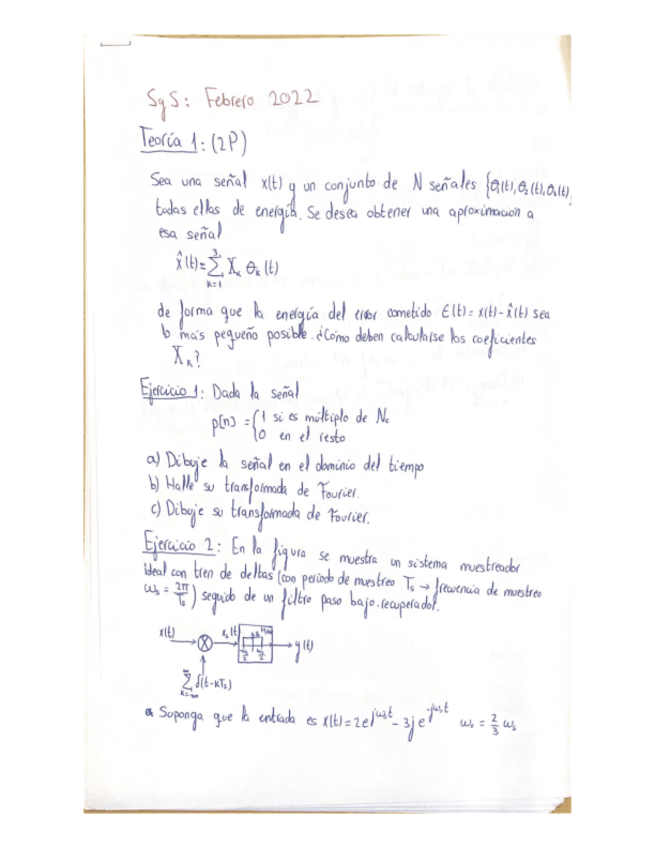 SyS: Febrero 2022
Teoría 1: (2P)
Sea una señal x(t) y un conjunto de N señales {θ₁(t), θ₂(t), θₙ(t),
todas ellas de energía. Se desea obtener una aproximacion a
esa señal
x̂(t) = Σ Xₖ θₖ(t)
de forma que la energía del error cometido ε(t) = x(t) - x̂(t) sea
lo más pequeño posible. ¿Cómo deben calcularse los coeficientes
Xₖ?
Ejercicio 1: Dada la señal
p[n] = { 1 si es múltiplo de N₀
0 en el resto
a) Dibuje la señal en el dominio del tiempo
b) Halle su transformada de Fourier.
c) Dibuje su transformada de Fourier.
Ejercicio 2: En la figura se muestra un sistema muestreador
ideal con tren de deltas (con periodo de muestreo Tₛ → frecuencia de muestreo
ωₛ = 2π/Tₛ) seguido de un filtro paso bajo recuperador.
x(t) xₛ(t) y(t)
Σ δ(t-kTₛ)
k=-∞
Suponga que la entrada es x(t) = 2e^jω₀t - 3je^-jω₀t ω₀ = 2/3 ωₛ